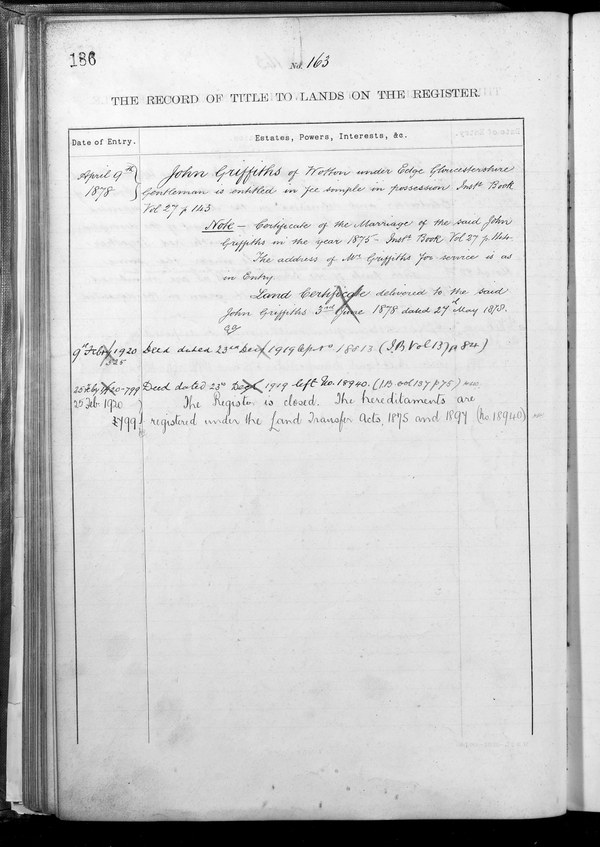 186
No. 163
THE RECORD OF TITLE TO LANDS ON THE REGISTER.
Date of Entry.
Estates, Powers, Interests, &c.
April 9th
1878
John Griffiths of Wotton under Edge Gloucestershire
Gentleman is entitled in fee simple in possession Inst. Book
Vol 27 p 143
Note – Certificate of the Marriage of the said John
Griffiths in the year 1875 – Inst. Book Vol 27 p. 144.
The address of Mr. Griffiths for service is as
in Entry
Land Certificate delivered to the said
John Griffiths 3rd June 1878 dated 27th May 1878.
9th Feby 1920
525
Deed dated 23rd Decr 1919 Dept No 18013 (I.B Vol 137 p 824)
25 Feby 1920-799
Deed dated 23rd Decr 1919 left No. 18940. (I.B vol 137 p 75)
25 Feb. 1920
799
The Register is closed. The hereditaments are
registered under the Land Transfer Acts, 1875 and 1897 (No. 18940)